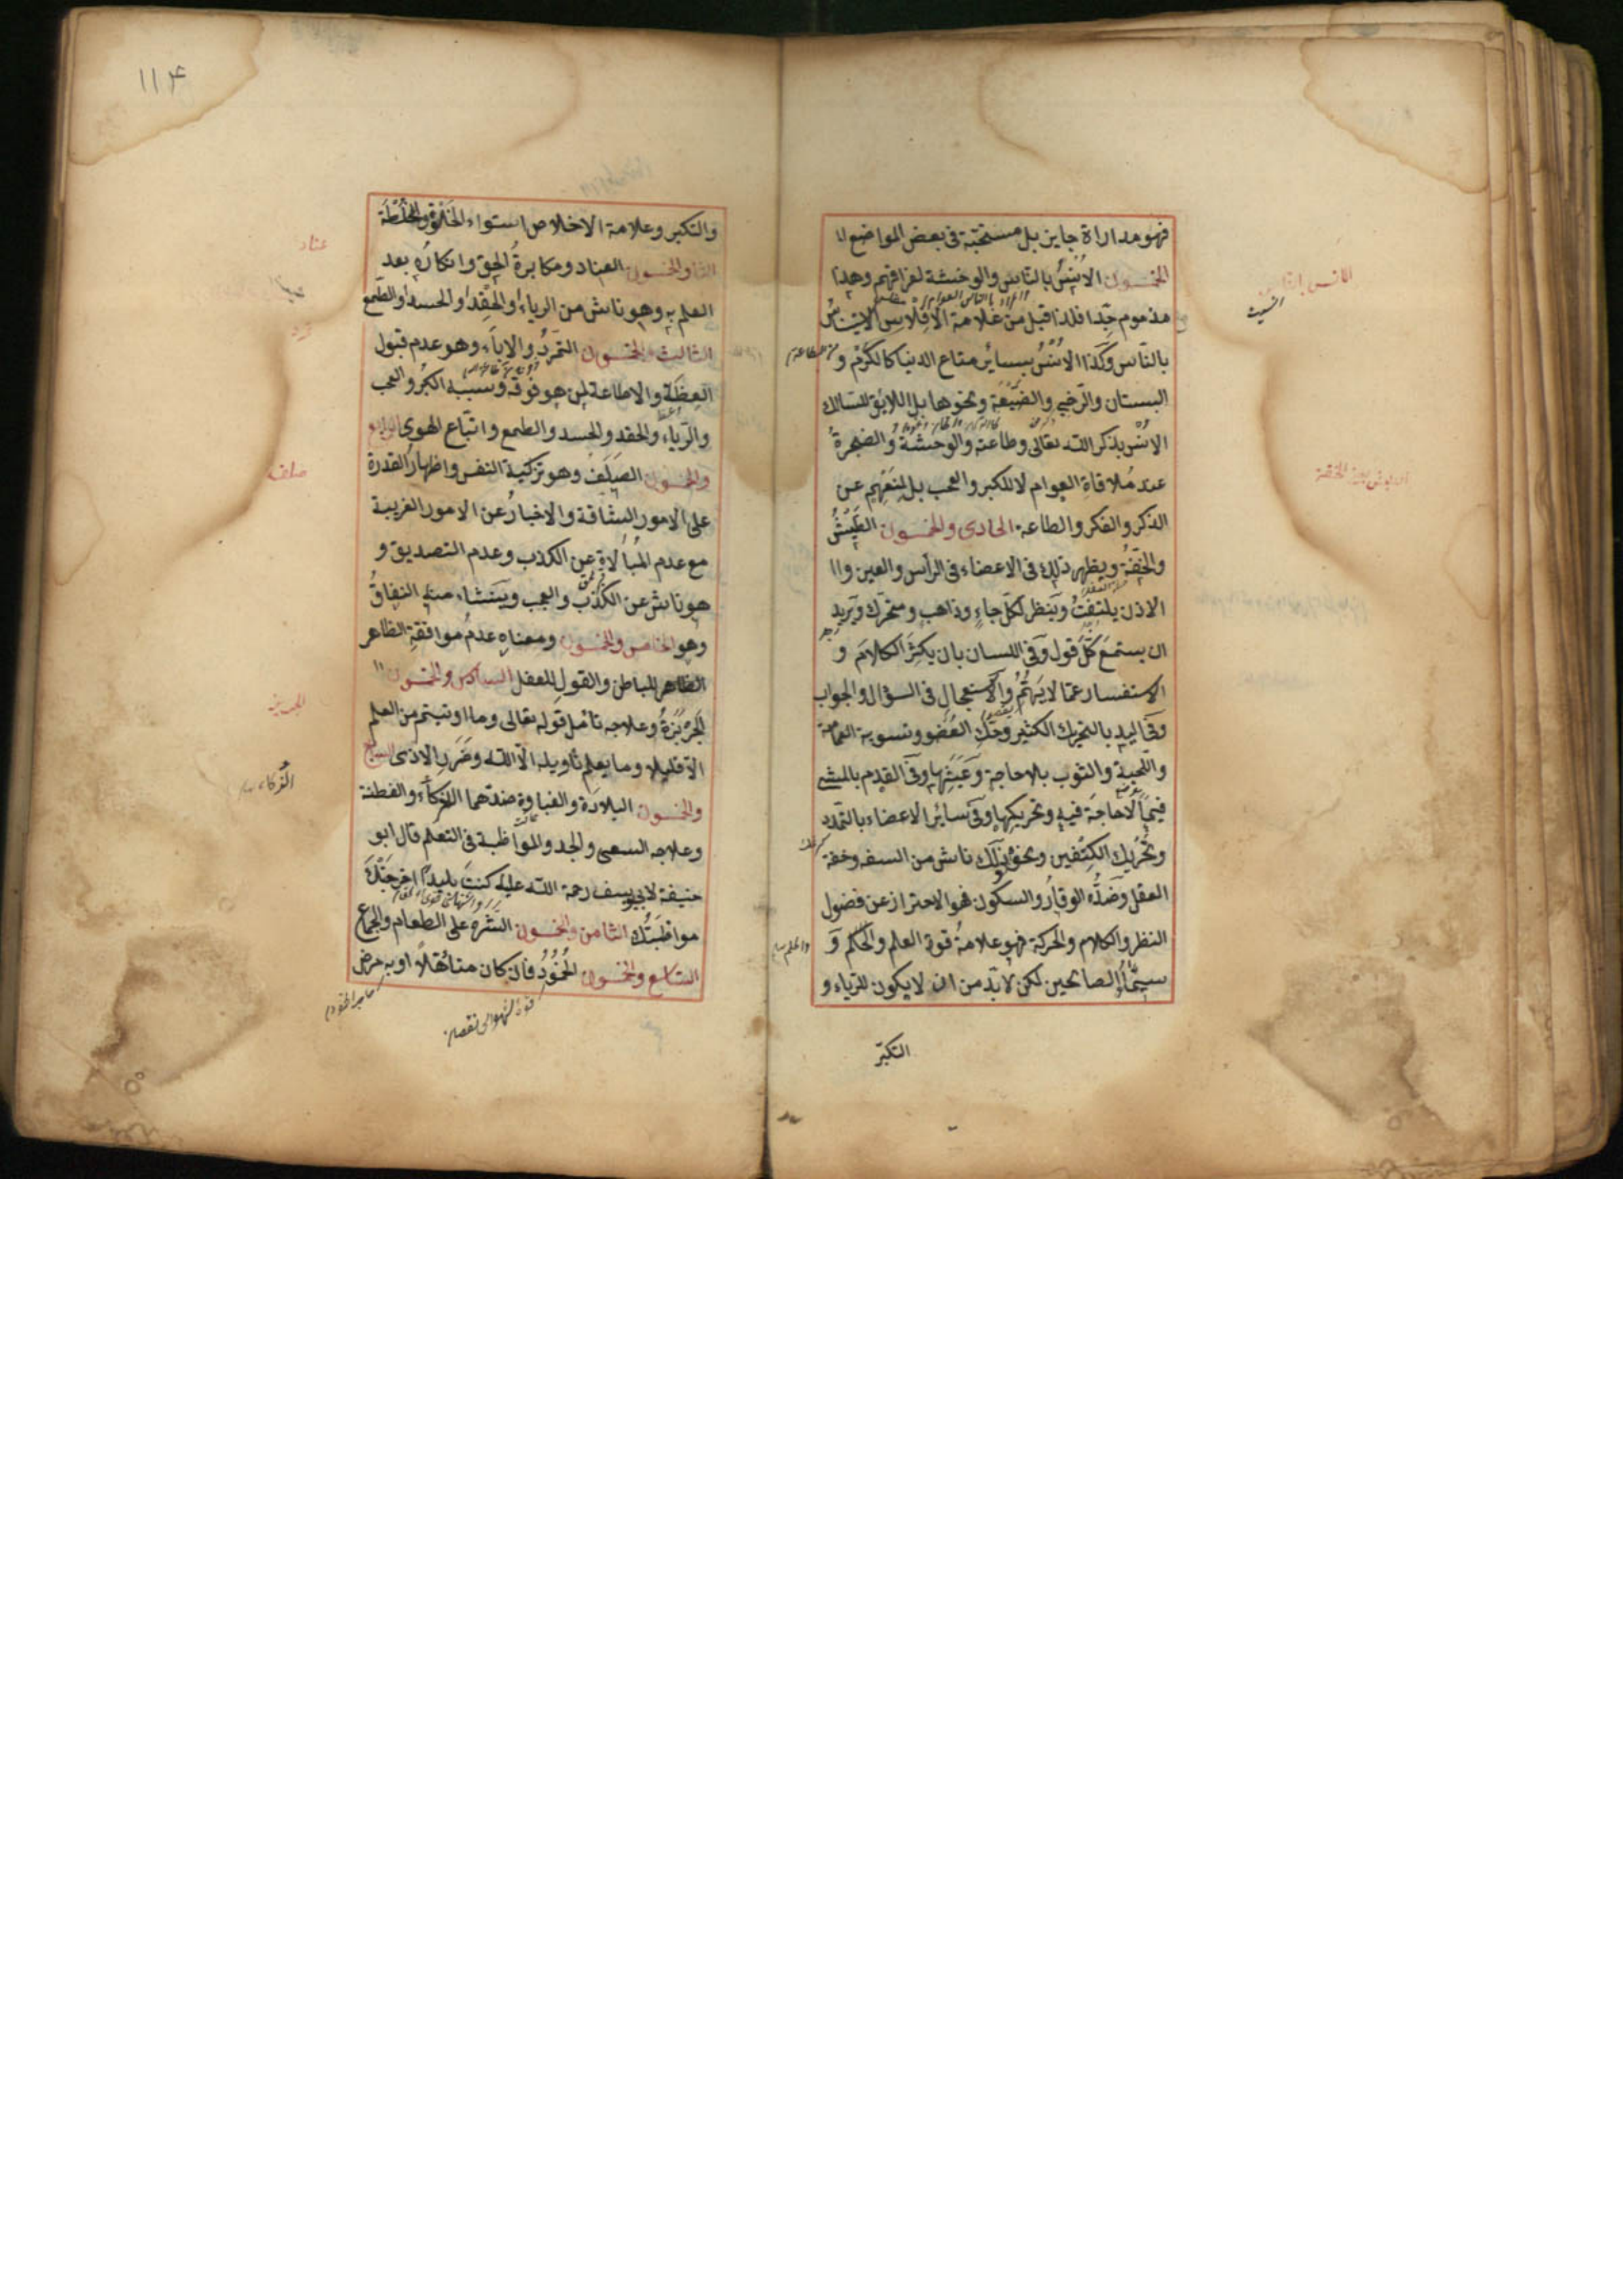 فهو مداراة جايز بل مستحبّة فى بعض المواضع ا
الخمسون الاُنسُ بالناس والوحشة لفراقهم وهذا
مذموم جدّا فلذا قيل من علامة الافلاس الاستيناسُ
بالنّاس وكَذا الاُنسُ بسائر متاع الدنيا كالكرم و
البستان والرّحى والضَيْعَة ونحوها بل اللايق للسّالك
الاُنس بذكر اللّه تعالى وطاعته والوحشةُ والضجرةُ
عند مُلاقاة العوام لا للكبر والعجب بل لمنعهم عن
الذكر والفكر والطاعة الحادى والخمسون الطَيْشُ
والخفّةُ ويظهر ذلك فى الاعضاء فى الرأس والعين وا
الاذن يلتفتُ ويَنظر لكلّ جاءٍ وذاهب ومتحرّك ويَريد
ان يستمعَ كلَّ قول وفى اللسان بان يكثرَ الكلامَ و
الاستفسار عمّا لا يَهُمُّ والاستعجالِ فى السؤال والجواب
وفى اليد بالتحريك الكثير وحكِّ العُضو وتسوية العمامة
واللّحية والثوب بلا حاجة وعَبَثِها وفى القدم بالمشى
فيما لا حاجة فيه وتحريكها وفى سائر الاعضاء بالتمدد
وتحْريك الكتفين ونحو ذلك ناش من السفه وخفة
العقل وضدُّه الوقارُ والسكون فهو الاحتراز عن فضول
النظر والكلام والحركة فهو علامةُ قوة العلم والحكم و
سيمَاءُ الصالحين لكن لا بدّ من ان لا يكون للرّياء و
التكبّر
١١٤
والتكبر وعلامة الاخلاص استواء الخَلْوَة والخُلْطَة
الثانى والخمسون العناد ومكابرةُ الحقِ وانكارُه بعد
العلم به وهو ناش من الرياء او الحِقد او الحسد او الطمع
الثالث والخمسون التمرّدُ والاباءُ وهو عدم قبول
العِظَة والاطاعة لمن هو فوقه وسببه الكبْر والعجب
والرّياء والحقد والحسد والطمع واتّباع الهوى الرابع
والخمسون الصَلَفُ وهو تزكية النفس واظهار القدرة
على الامور الشاقة والاخبارُ عن الامور الغريبة
مع عدم المُبالاة عن الكذب وعدم التصديق و
هو ناش عن الكِذْب والعجب ويَنشاء منه النفاقُ
وهو الخامس والخمسون ومعناه عدمُ موافقةِ الظاهر
الظاهر للباطن والقولِ للعقل السادس والخمسون
الجَرْبَزةُ وعلاجه تأمل قوله تعالى وما اوتيتم من العلم
الّا قليلا وما يعلم تأويله الّا اللّه وضَرَرِ الاذى السابع
والخمسون البلادَة والغباوة ضدّهما الذكاء والفطنة
وعلاجه السعى والجد والمواظبة فى التعلم قال ابو
حنيفة لابى يوسف رحمة اللّه عليه كنتَ بليدًا اخرجتْكَ
مواظبَتُك الثامن والخمسون الشَّرَهُ على الطعام والجماع
التاسع والخمسون الخُمُودُ فان كان متأهّلاً او به مرض
عناد
صلف
الذكاء